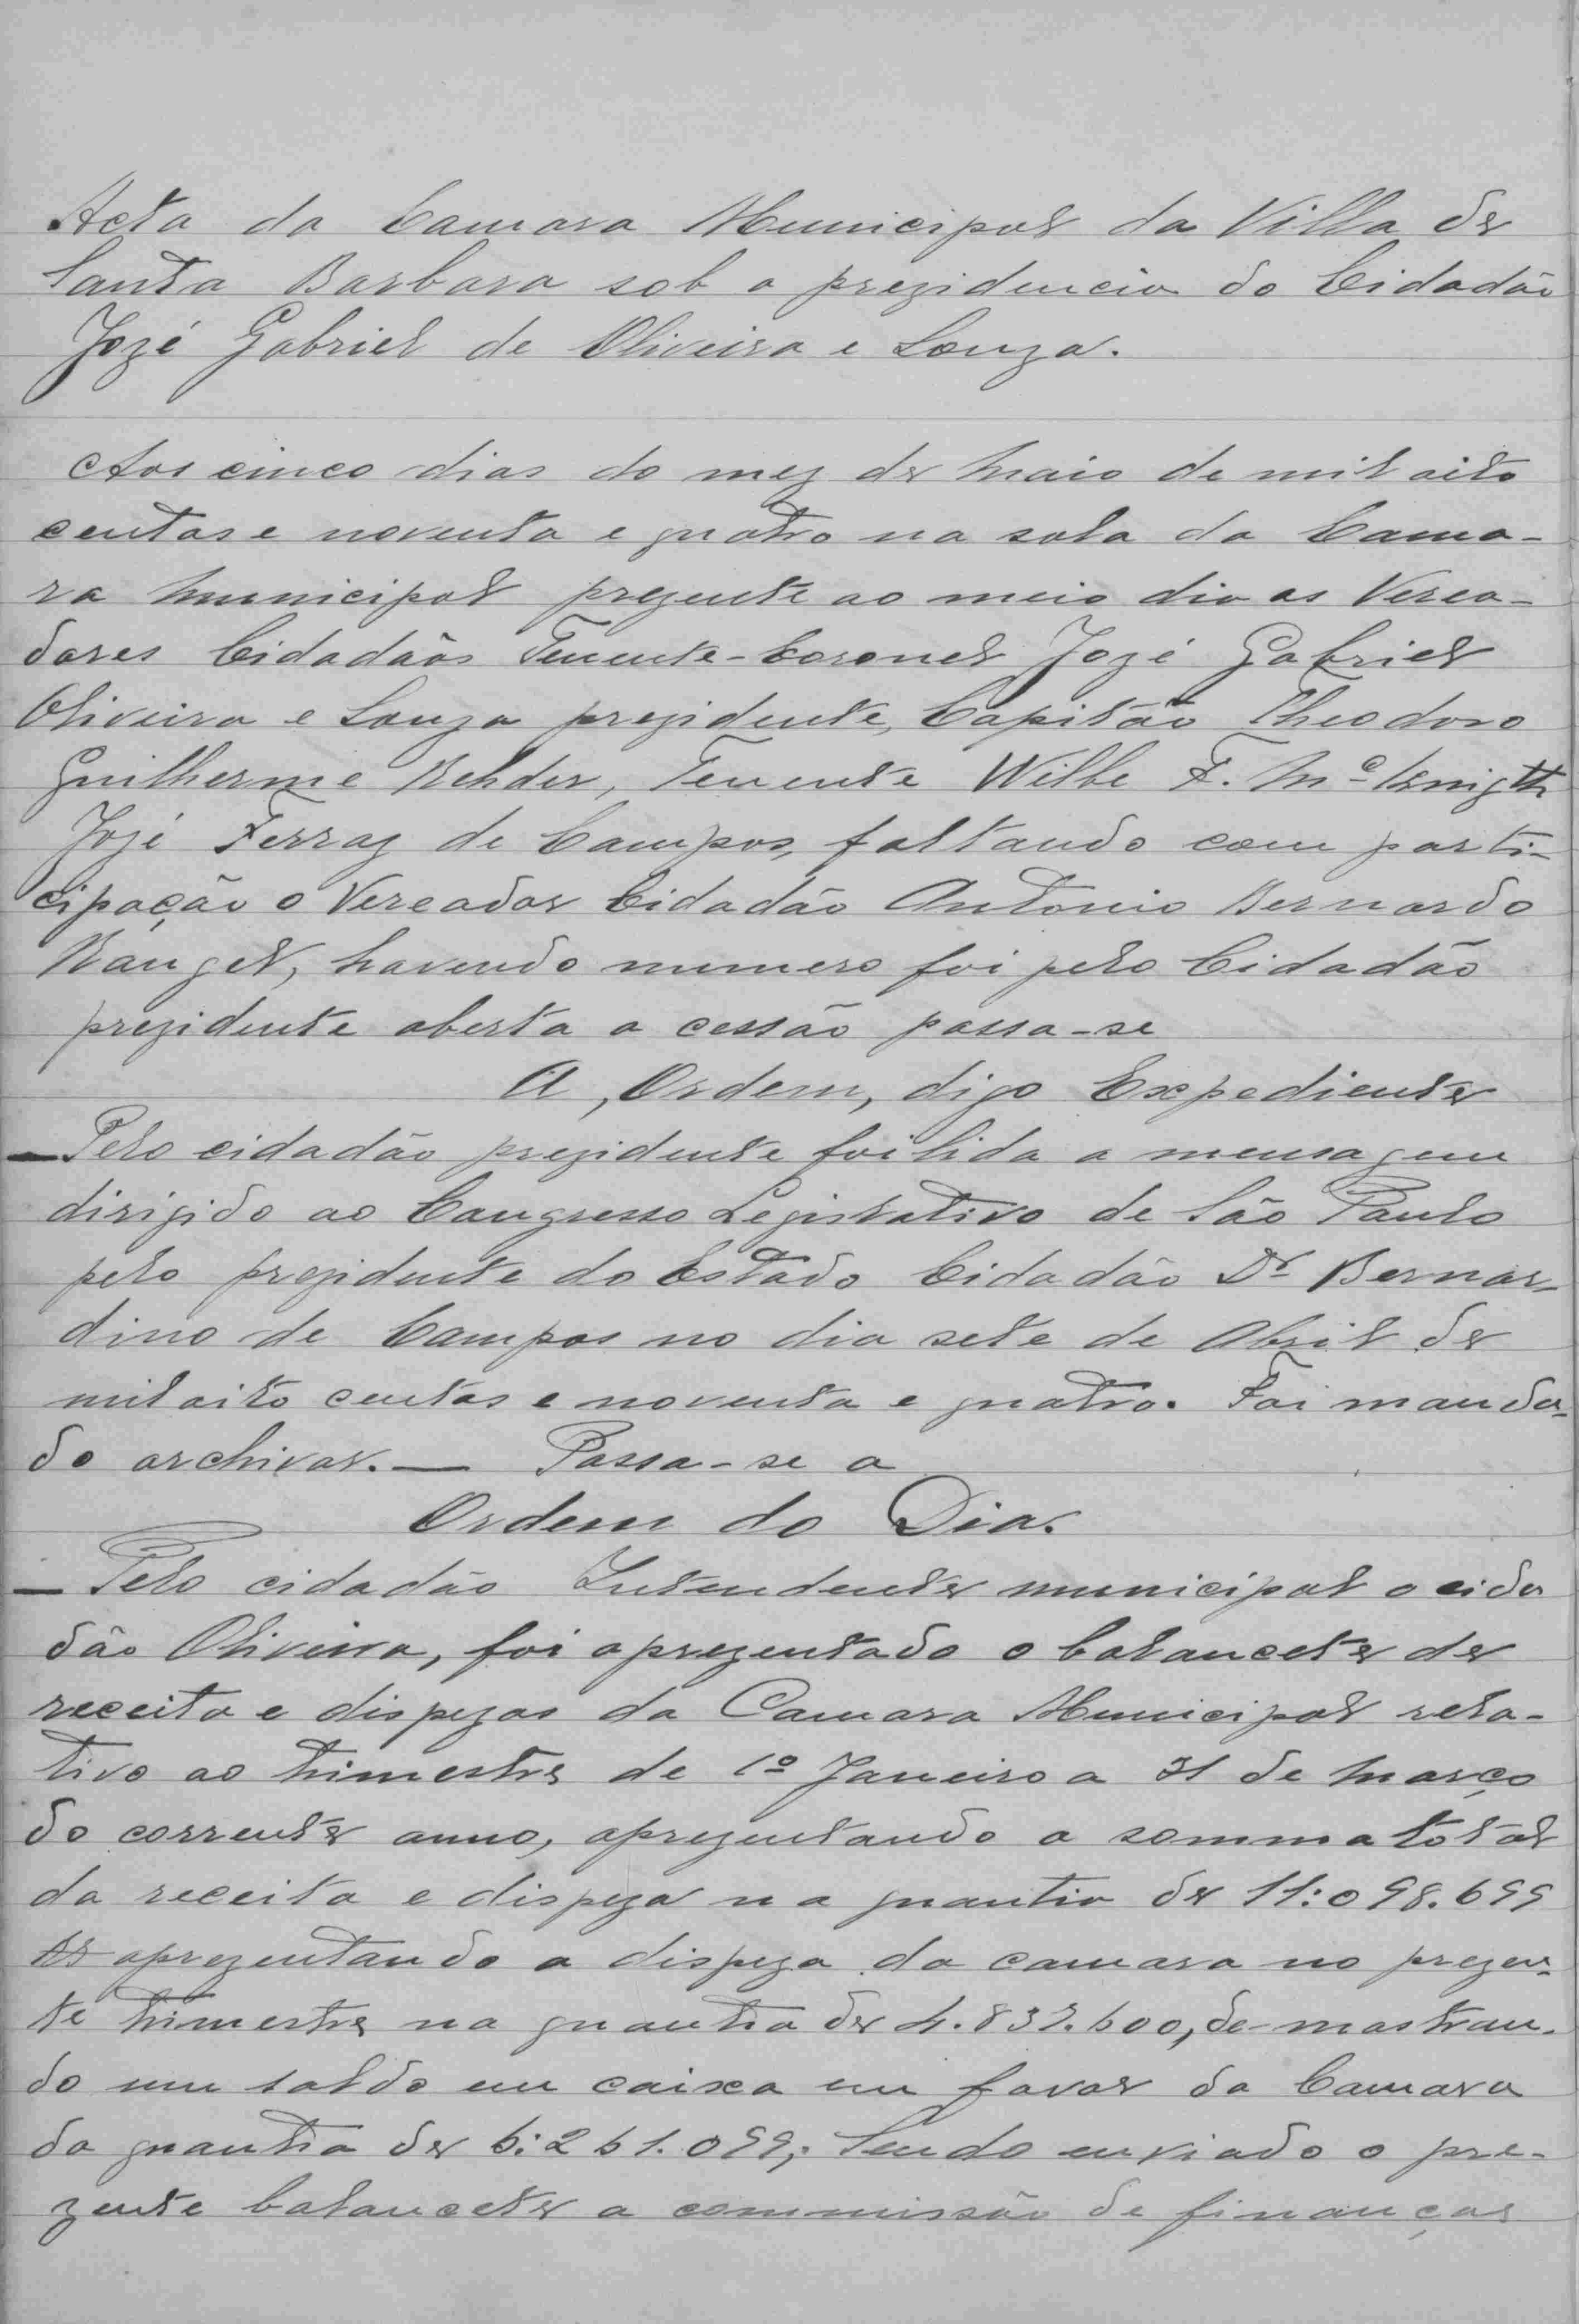 Acta da Camara Municipal da Villa de
Santa Barbara sob a prezidencia do Cidadão
Jozé Gabriel de Oliveira e Souza.
Aos cinco dias do mez de Maio de mil oito
centos e noventa e quatro na sala da Cama-
ra Municipal prezente ao meio dia os Verea-
dores Cidadãos Tenente-Coronel Jozé Gabriel
Oliveira e Souza prezidente, Capitão Theodoro
Guilherme Rehder, Tenente Wilbe F. Mc Knigth
Jozé Ferraz de Campos, faltando com parti-
cipação o Vereador Cidadão Antonio Bernardo
Rangel, havendo numero foi pelo Cidadão
prezidente aberta a cessão passa-se
A, Ordem, digo Expediente
— Pelo cidadão prezidente foi lida a mensagem
dirigido ao Congresso Legislativo de São Paulo
pelo prezidente do Estado Cidadão Dr Bernar-
dino de Campos no dia sete de Abril de
mil oito centos e noventa e quatro. Foi manda-
do archivar. — Passa-se a
Ordem do Dia.
— Pelo cidadão Intendente municipal o cida
dão Oliveira, foi aprezentado o balancete de
receita e dispezas da Camara Municipal rela-
tivo ao trimestre de 1º Janeiro a 31 de Março
do corrente anno, aprezentando a somma total
da receita e dispeza na quantia de 11:098.699
aprezentando a dispeza da camara no prezen-
te trimestre na quantia de 4.837.600, demostran-
do um saldo em caixa em favor da Camara
da quantia de 6:261.099; Sendo enviado o pre-
zente balancete a commissão de finanças